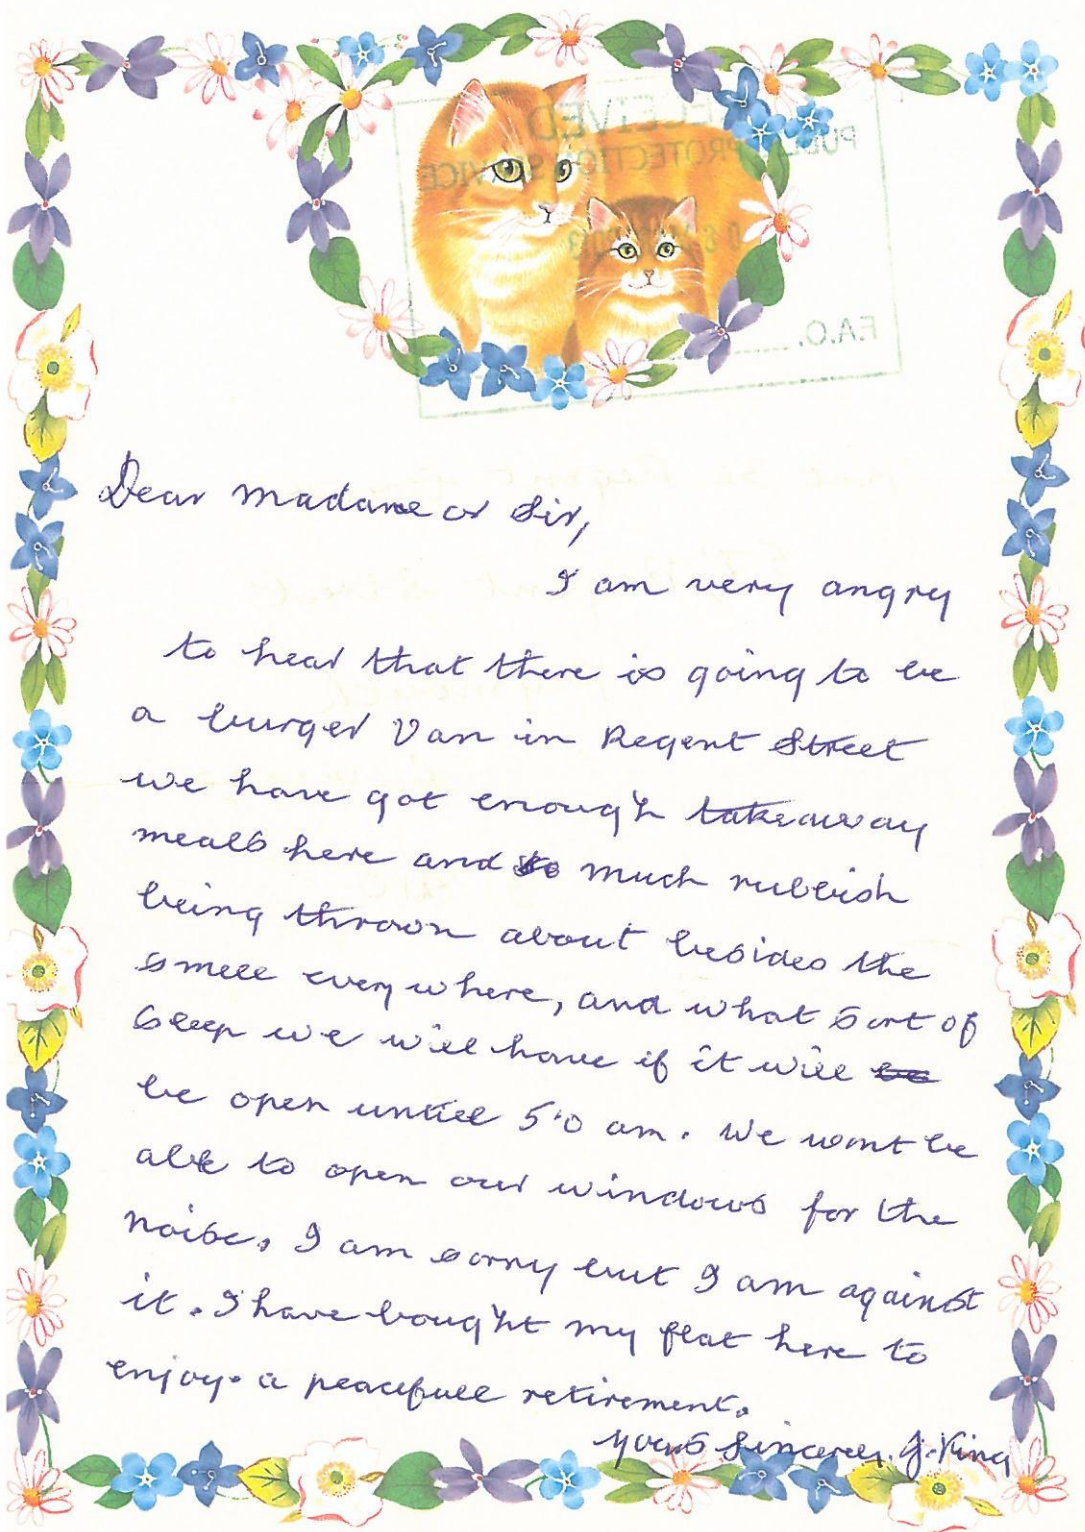 RECEIVED
PUBLIC PROTECTION SERVICE
F.A.O.
Dear Madame or Sir,
I am very angry
to hear that there is going to be
a burger Van in Regent Street
we have got enough takeaway
meals here and so much rubbish
being thrown about besides the
smell everywhere, and what sort of
sleep we will have if it will be
be open untill 5.0 am. We wont be
able to open our windows for the
noise. I am sorry but I am against
it. I have bought my flat here to
enjoy. a peacefull retirement.
Yours Sincerely. J. King